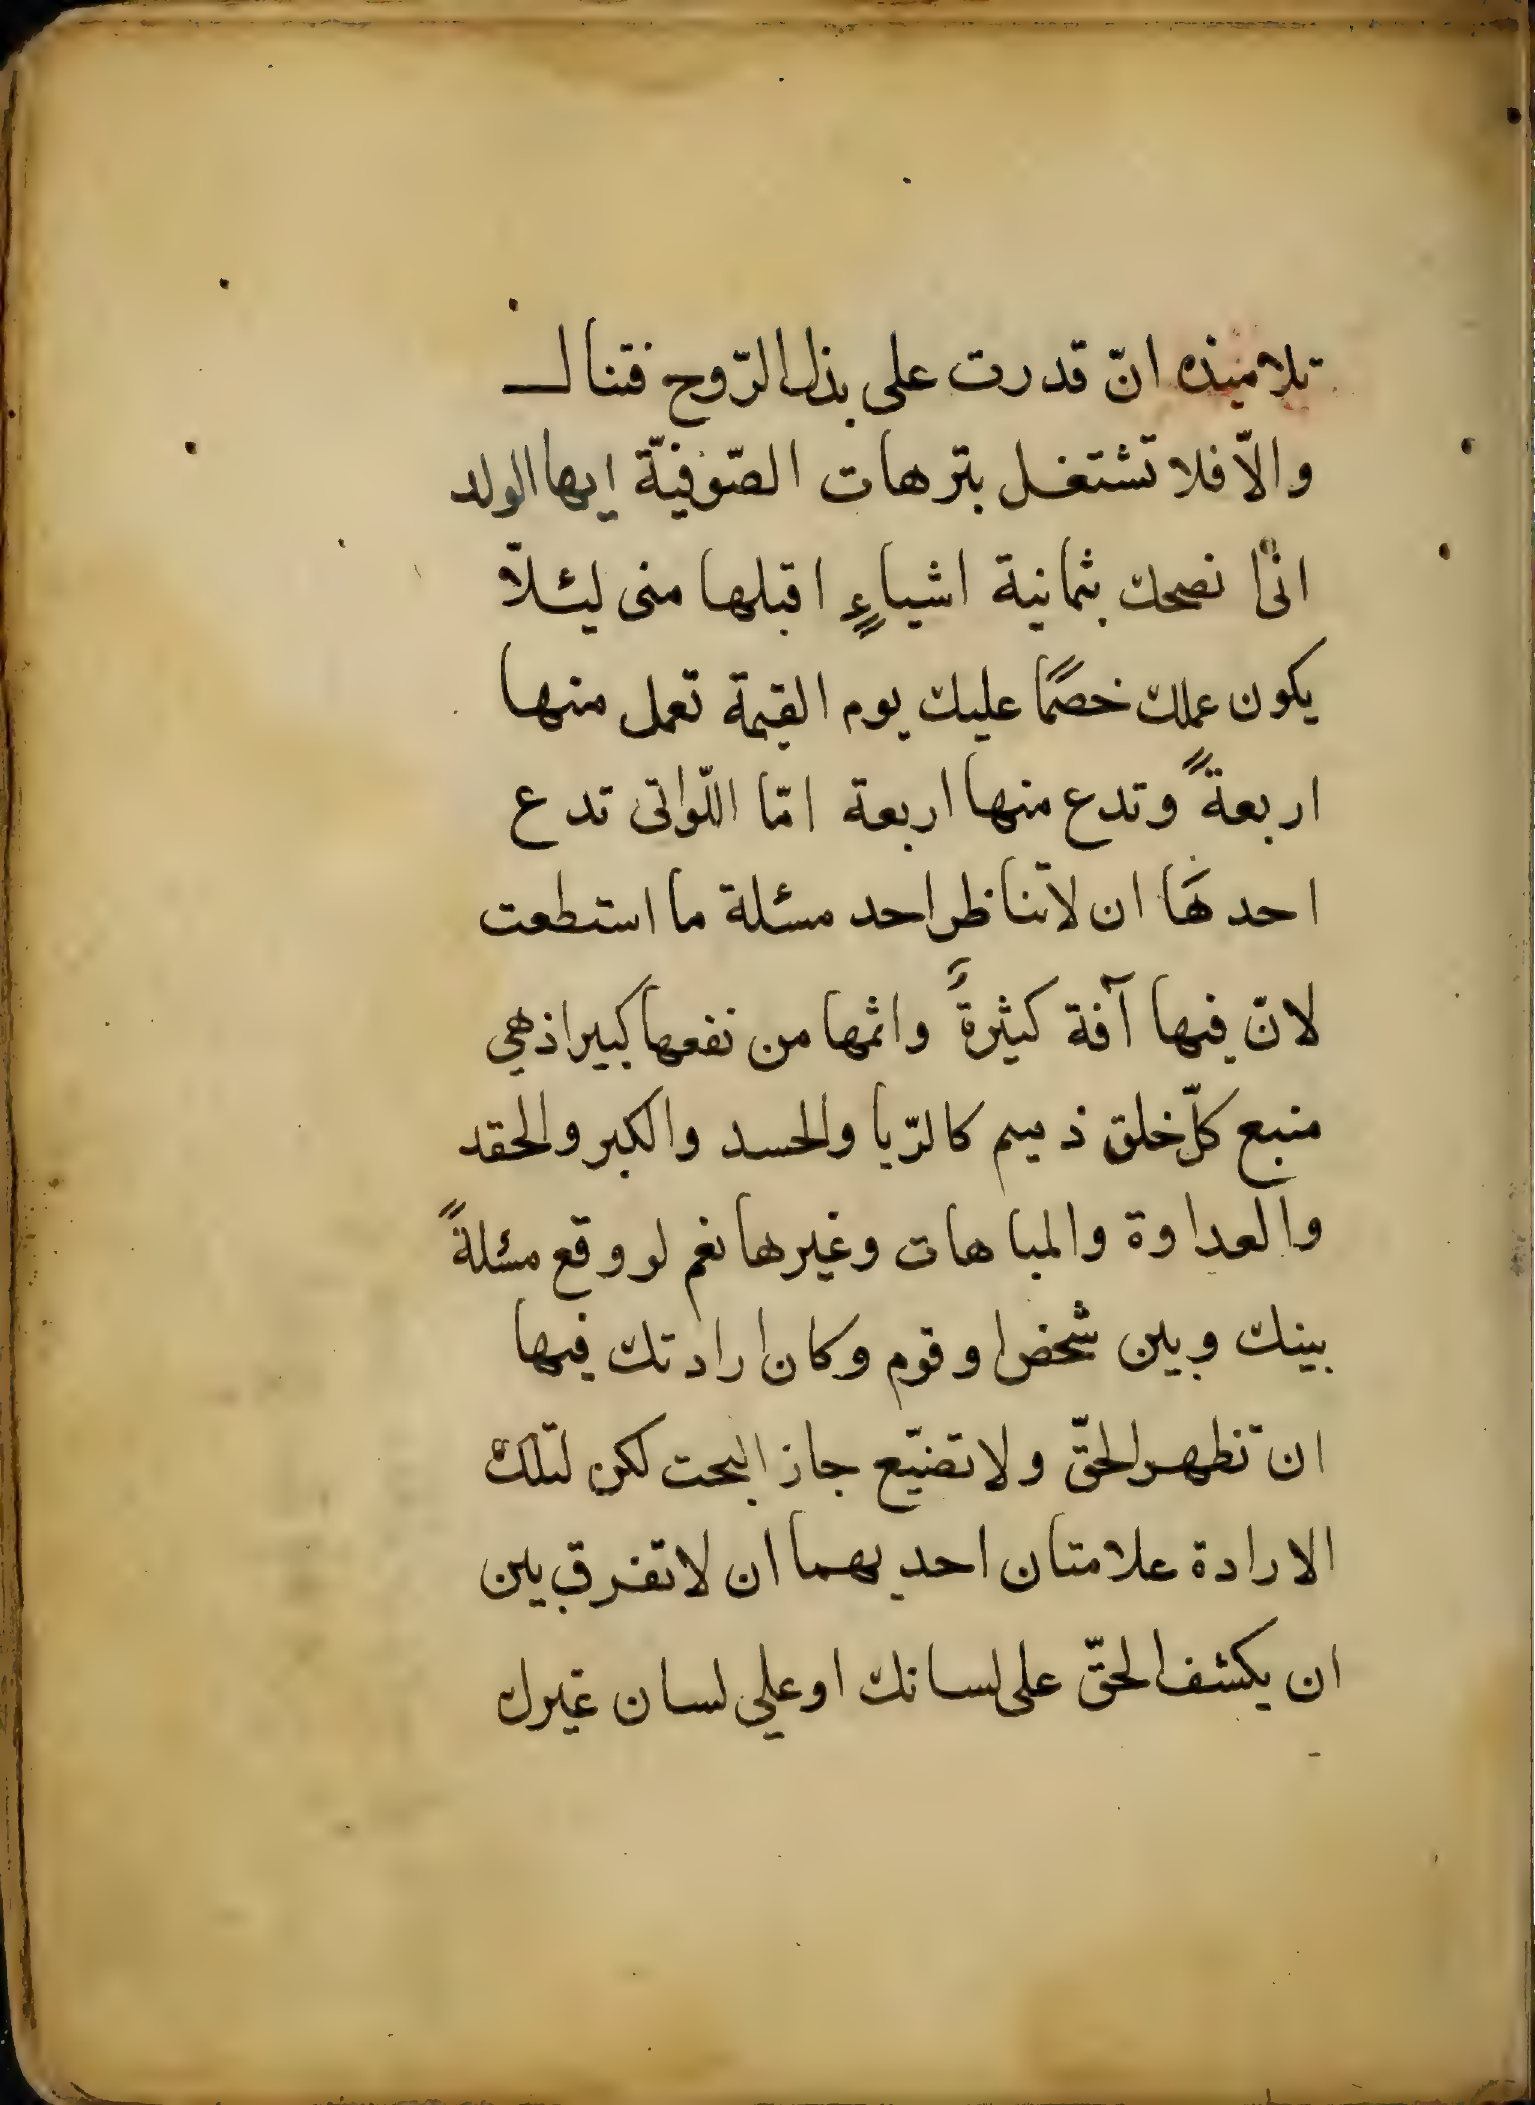 تلاميذه انّ قدرت على بذل الرّوح فتنال
والّا فلا تشتغل بترهات الصّوفيّة ايها الولد
انّى انصحك بثمانية اشياءٍ اقبلها منى ليئلاّ
يكون عملك خصمًا عليك يوم القيمة تعمل منها
اربعةً وتدع منها اربعة امّا اللّواتى تدع
احدها ان لا تناظر احد مسئلة ما استطعت
لانّ فيها آفة كثيرةً واثمها من نفعها كبير اذ هي
منبع كلّ خلق ذميم كالرّيا والحسد والكبر والحقد
والعداوة والمباهات وغيرها نعم لو وقع مسئلةً
بينك وبين شخص او قوم وكان ارادتك فيها
ان تظهر الحقّ ولا تضيّع جاز البحت لكن لتلك
الارادة علامتان احديهما ان لا تفرق بين
ان يكشف الحقّ على لسانك او على لسان غيرك